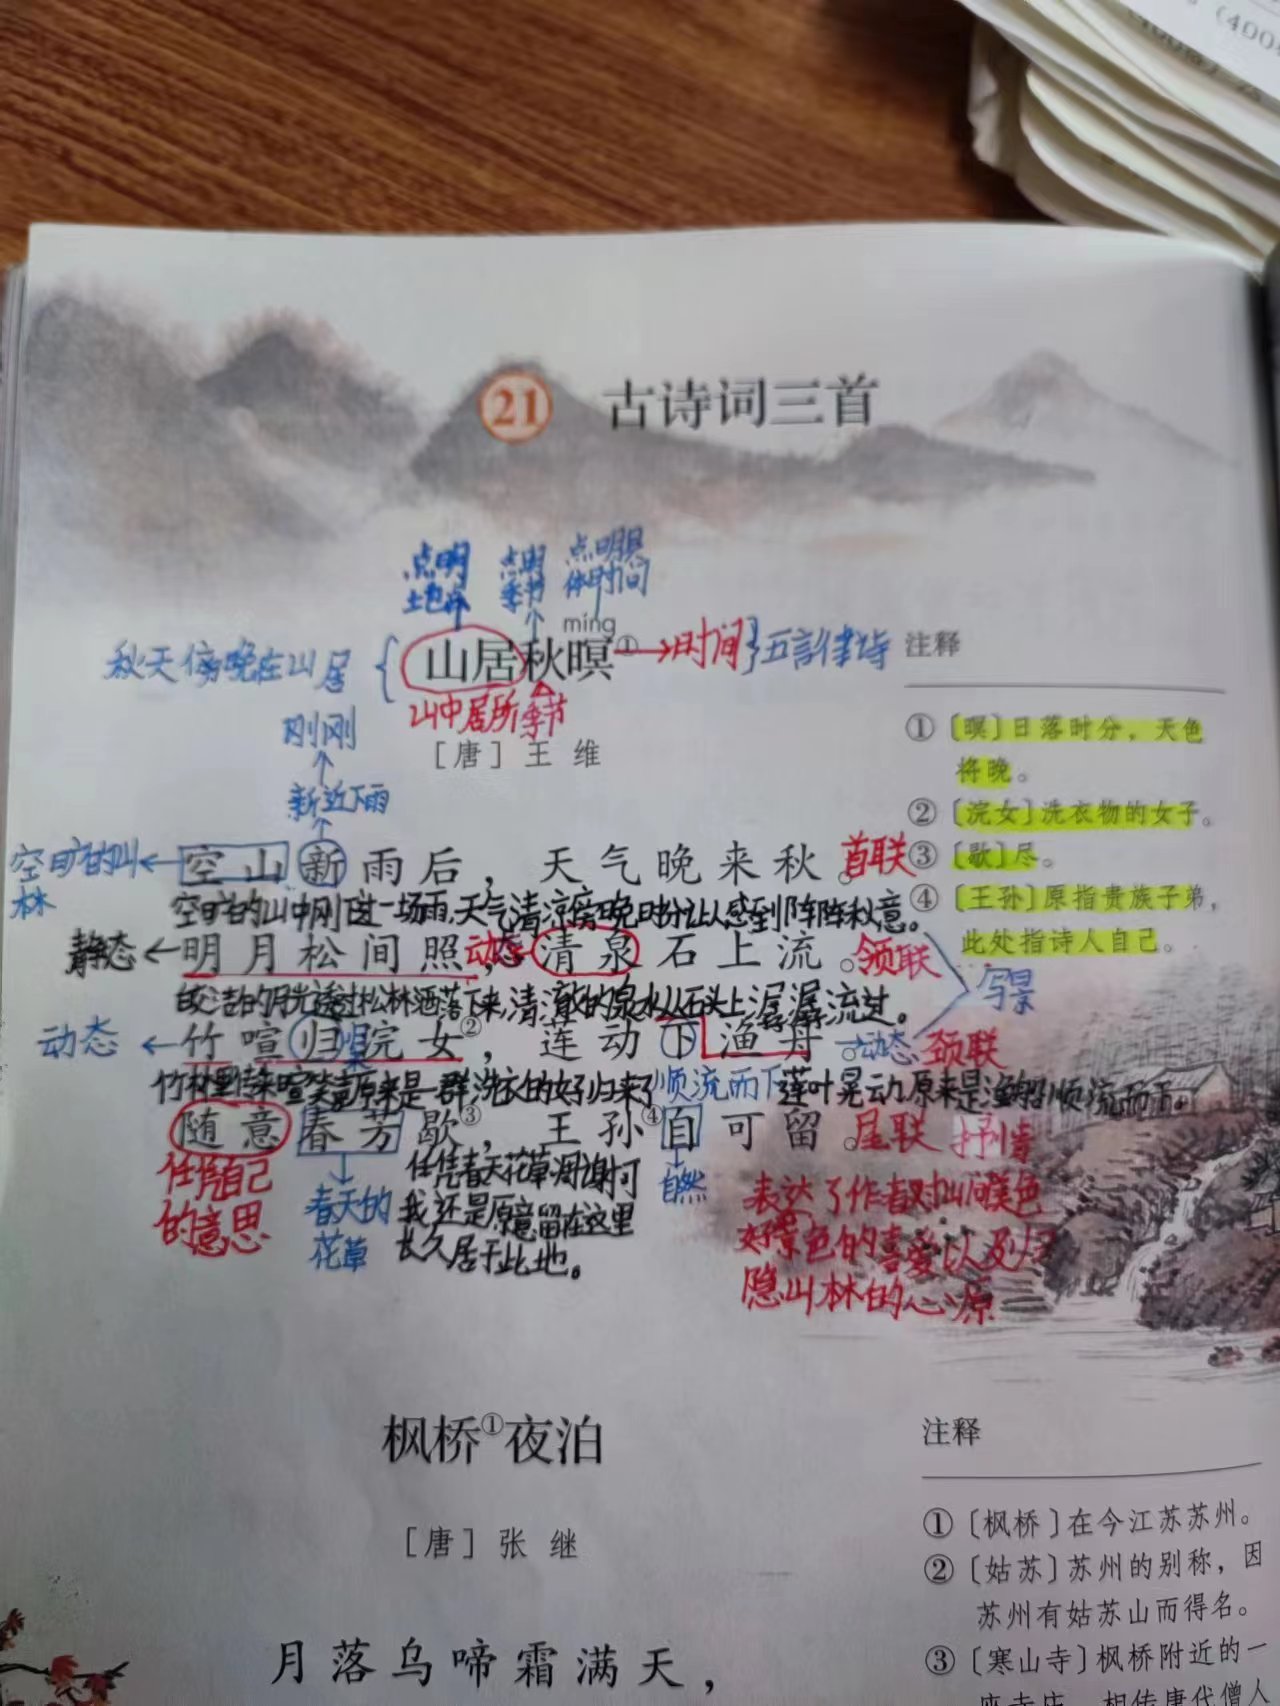 (400
21 古诗词三首
点明 点明 点明具
土地点 季节 体时间
míng
秋天傍晚在山居 山居秋暝① 时间 五言律诗
山中居所 季节
刚刚
[唐] 王 维
新近下雨
注释
① 〔暝〕日落时分，天色
将晚。
② 〔浣女〕洗衣物的女子。
③ 〔歇〕尽。
④ 〔王孙〕原指贵族子弟，
此处指诗人自己。
空旷的山
林
空山新雨后，天气晚来秋。 首联
空旷的山中刚下过一场雨，天气清凉傍晚时分让人感到阵阵秋意。
静态 明月松间照，动态 清泉石上流。 颔联
写景
皎洁的月光透过松林洒落下来，清澈的泉水从石头上潺潺流过。
动态 竹喧归浣女②，莲动下渔舟。 动态 颈联
竹林里传来喧笑声原来是一群洗衣的女子归来了 顺流而下 莲叶晃动原来是渔船顺流而下。
随意春芳歇③，王孙④自可留。 尾联 抒情
任凭自己
的意思
春天的
花草
任凭春天花草凋谢可
我还是愿意留在这里
长久居于此地。
自然
表达了作者对山间美色
好景色的喜爱以及归
隐山林的心愿
枫桥①夜泊
[唐] 张 继
月落乌啼霜满天，
注释
① 〔枫桥〕在今江苏苏州。
② 〔姑苏〕苏州的别称，因
苏州有姑苏山而得名。
③ 〔寒山寺〕枫桥附近的一
座寺庙，相传唐代僧人